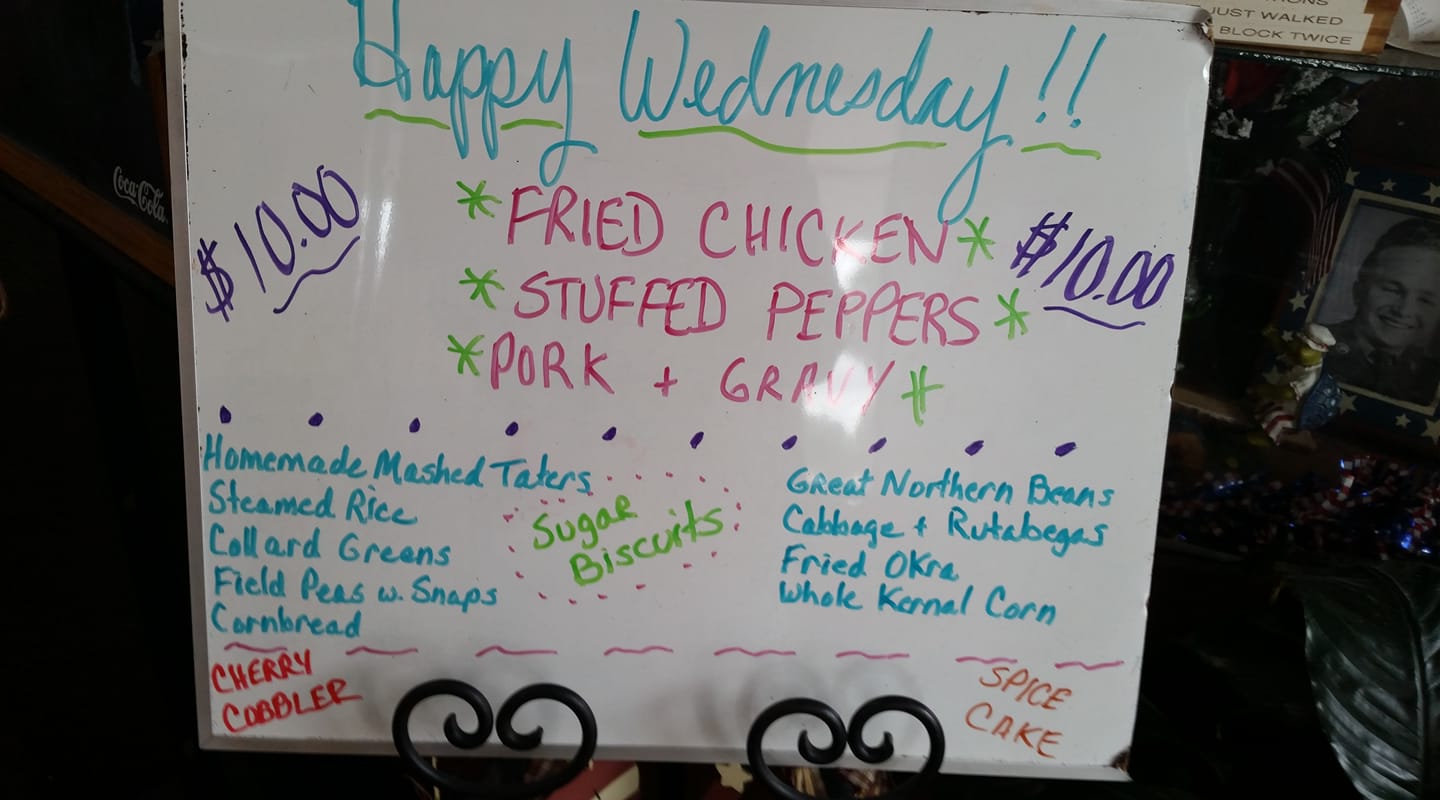 TIONS
JUST WALKED
BLOCK TWICE
Happy Wednesday!!
Coca-Cola
$10.00
* FRIED CHICKEN *
$10.00
* STUFFED PEPPERS *
* PORK + GRAVY *
Homemade Mashed Taters
Steamed Rice
Collard Greens
Field Peas w. Snaps
Cornbread
Sugar
Biscuits
Great Northern Beans
Cabbage + Rutabegas
Fried Okra
Whole Kernal Corn
CHERRY
COBBLER
SPICE
CAKE